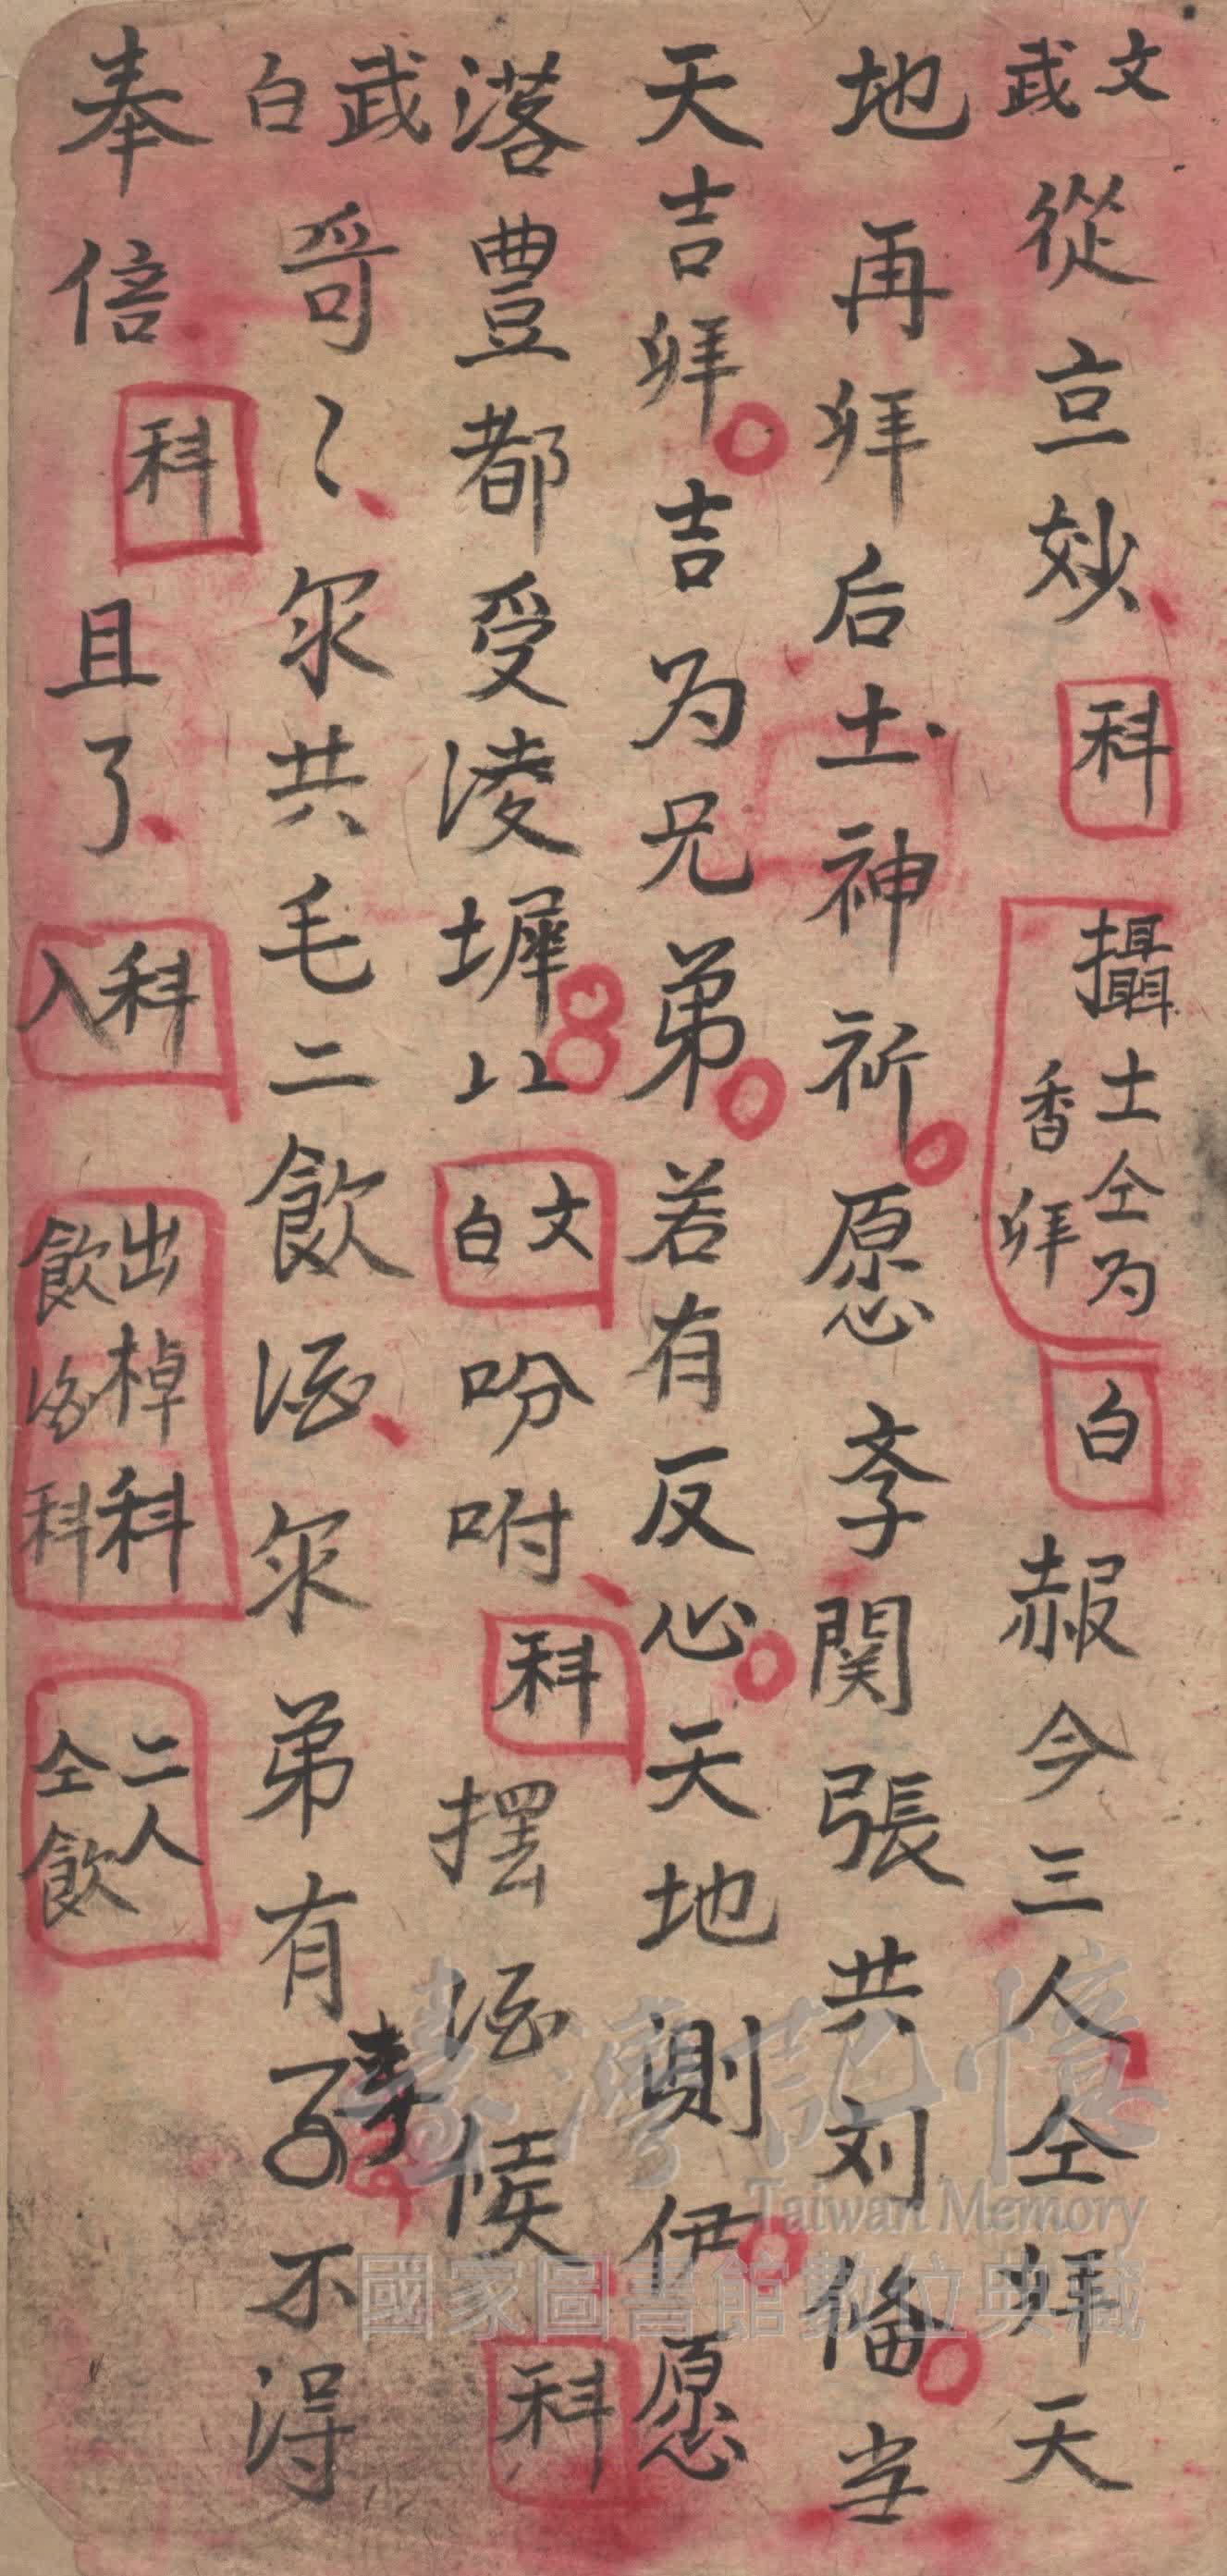 文武 從豆妙 科 攝土仝为香拜 白 赧今三人仝拜天
地再拜后土神祈愿斈関張共刘俻当
天吉拜吉为兄弟若有反心天地剆伊愿
落豊都受淩墀 文白 吩咐 科 摆酒候 科
武白 哥〻 尔共毛二飲酒 尔弟有孝不得
奉倍 科 且了 科入 出棹科飲酒科 二人仝飲
臺灣記憶
Taiwan Memory
國家圖書館數位典藏